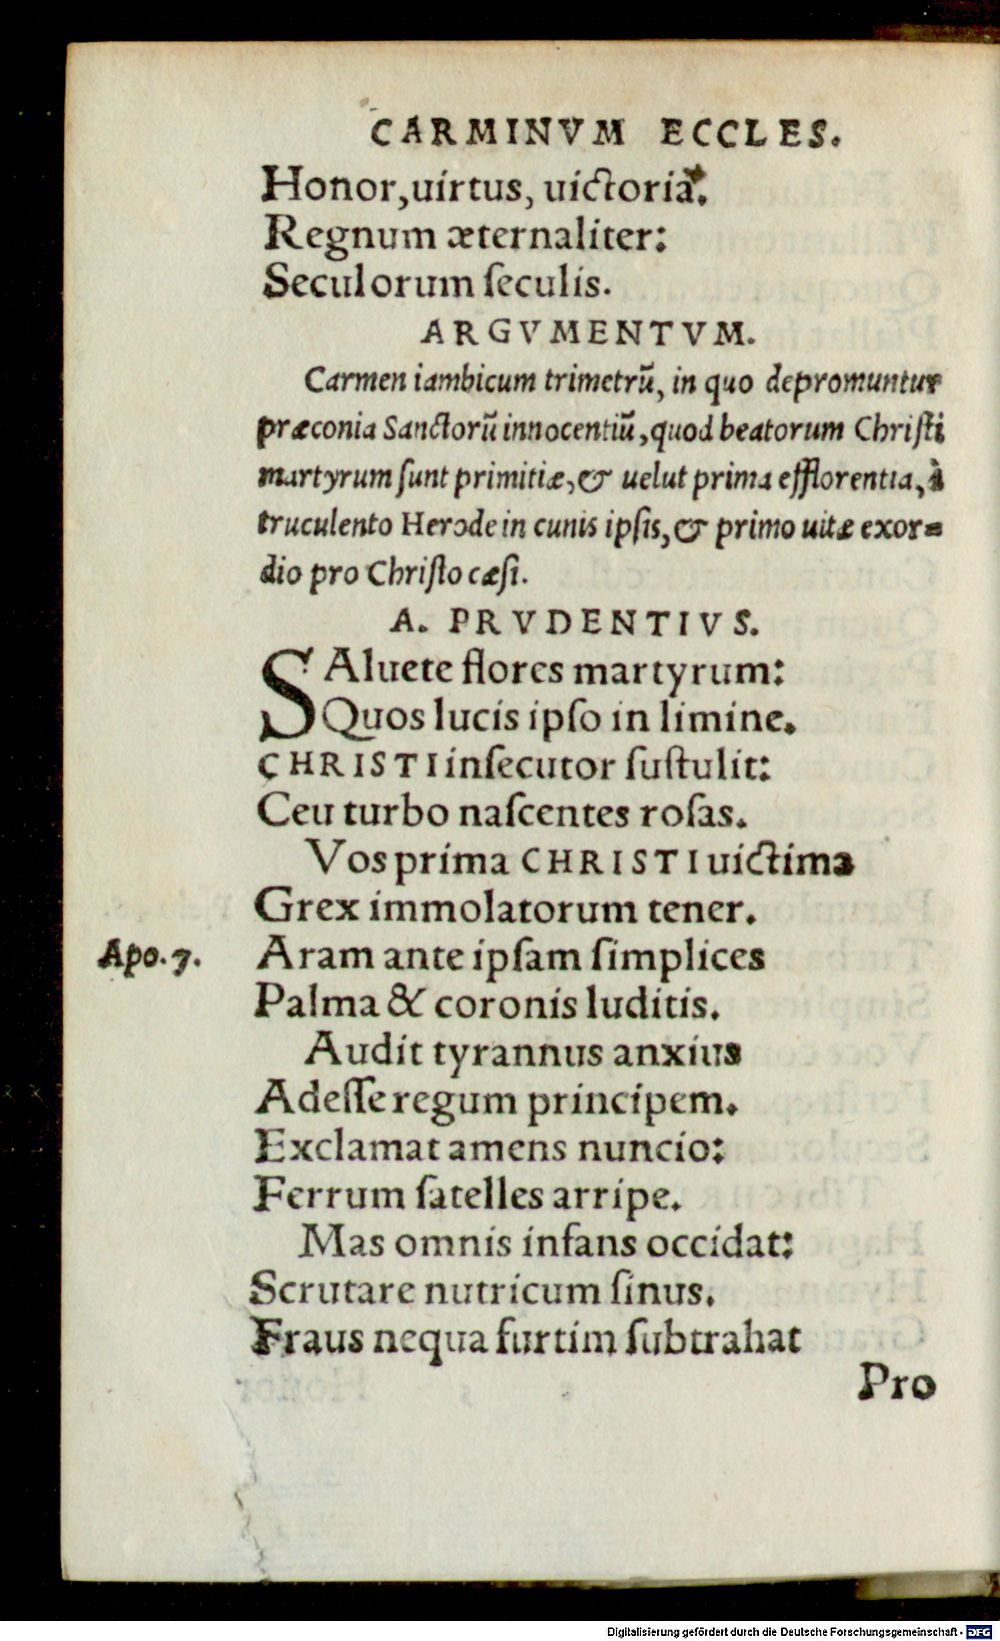 CARMINVM ECCLES.
Honor,uirtus, uictoria.
Regnum æternaliter:
Seculorum ſeculis.
ARGVMENTVM.
Carmen iambicum trimetrū, in quo depromuntur
præconia Sanctorū innocentiū,quod beatorum Chriſti
martyrum ſunt primitiæ,& uelut prima efflorentia,à
truculento Herode in cunis ipſis,& primo uitæ exor=
dio pro Chriſto cæſi.
A. PRVDENTIVS.
SAluete flores martyrum:
Quos lucis ipſo in limine.
CHRISTI inſecutor ſuſtulit:
Ceu turbo naſcentes roſas.
Vos prima CHRISTI uictima
Grex immolatorum tener.
Apo.7. Aram ante ipſam ſimplices
Palma & coronis luditis.
Audit tyrannus anxius
Adeſſe regum principem.
Exclamat amens nuncio:
Ferrum ſatelles arripe.
Mas omnis infans occidat:
Scrutare nutricum ſinus.
Fraus nequa furtim ſubtrahat
Pro
Digitalisierung gefördert durch die Deutsche Forschungsgemeinschaft - DFG